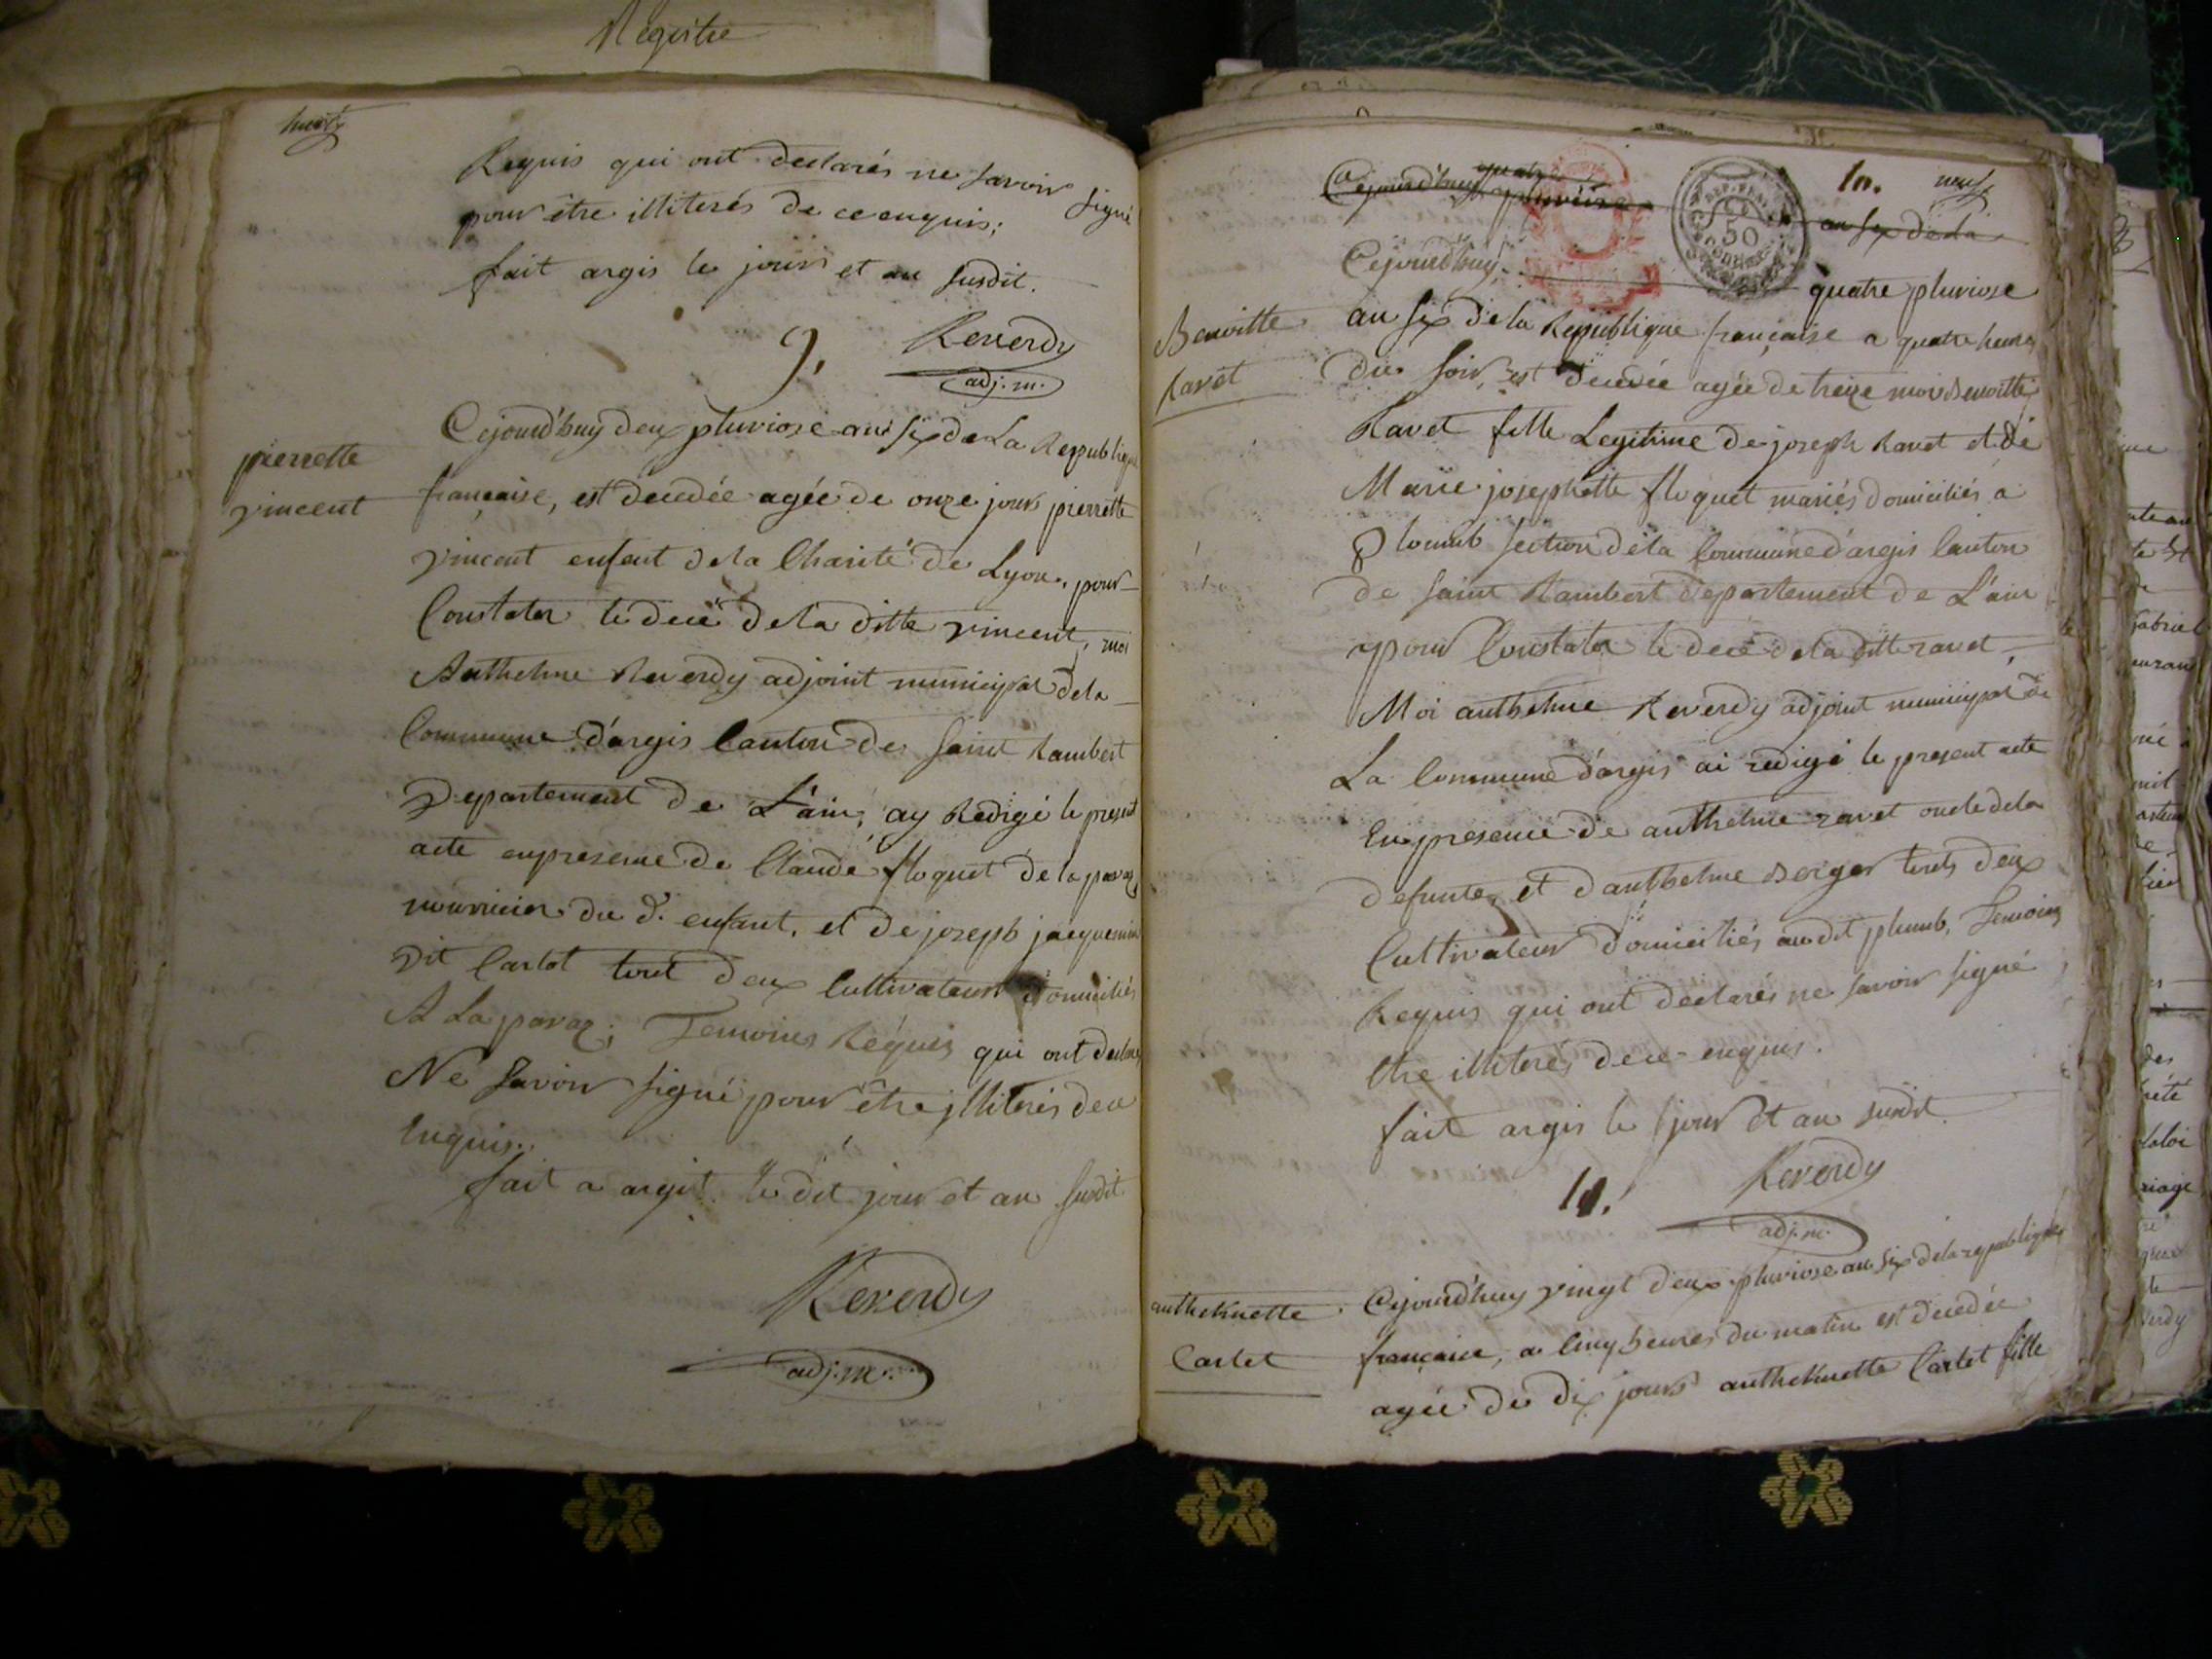 Registre
huit
Requis qui ont declarés ne savoir signé
pour être illiterés de ce enquis;
fait argis le jour et an susdit.
9.
Reverdy
adj. m.
pierrette
vincent
Cejourd'huy deux pluviose an six de La Republique
française, est decedée agée de onze jours pierrette
vincent enfent de la Charité de Lyon, pour
Constater le decé de la ditte vincent, moi
Anthelme Reverdy adjoint municipal de la
Commune d'argis Canton de Saint Rambert
Departement de L'ain, ay Redigé le present
acte enpresence de Claude floquet de la pavaz
nourricier du d. enfant, et de joseph jacquemin
dit Carlot tout deux Cultivateurs domiciliés
A La pavaz; Temoins Réquis qui ont declarés
Ne savoir signé pour être illiterés dece
Enquis.
fait a argis le dit jour et an susdit
Reverdy
adj. m.
Cejourd'huy quatre pluviose an six de la
10. neuf
REP. FRA.
50
Benoitte
Ravet
Cejourd'huy quatre pluviose
an six de la Republique française a quatre heures
du soir, est decedée agée de treize mois Benoitte
Ravet fille Legitime de joseph Ravet et de
Marie josephette floquet mariés domiciliés a
Plomb section de la Commune d'argis Canton
de saint Rambert departement de L'ain
pour Constater le decé de la ditte ravet,
Moi anthelme Reverdy adjoint municipal de
La Commune d'argis ai redigé le present acte
En presence de anthelme ravet oncle de la
defunte et d'anthelme Berger touts deux
Cultivateurs domiciliés audit plumb, Temoins
Requis qui ont declarés ne savoir signé
Etre illiterés de ce enquis.
fait argis le jour et an susdit
Reverdy
adj. m.
anthelmette
Cartet
Cejourd'huy vingt deux pluviose an six de la republique
française, a Cinq heures du matin est decedée
agée de dix jours anthelmette Cartet fille